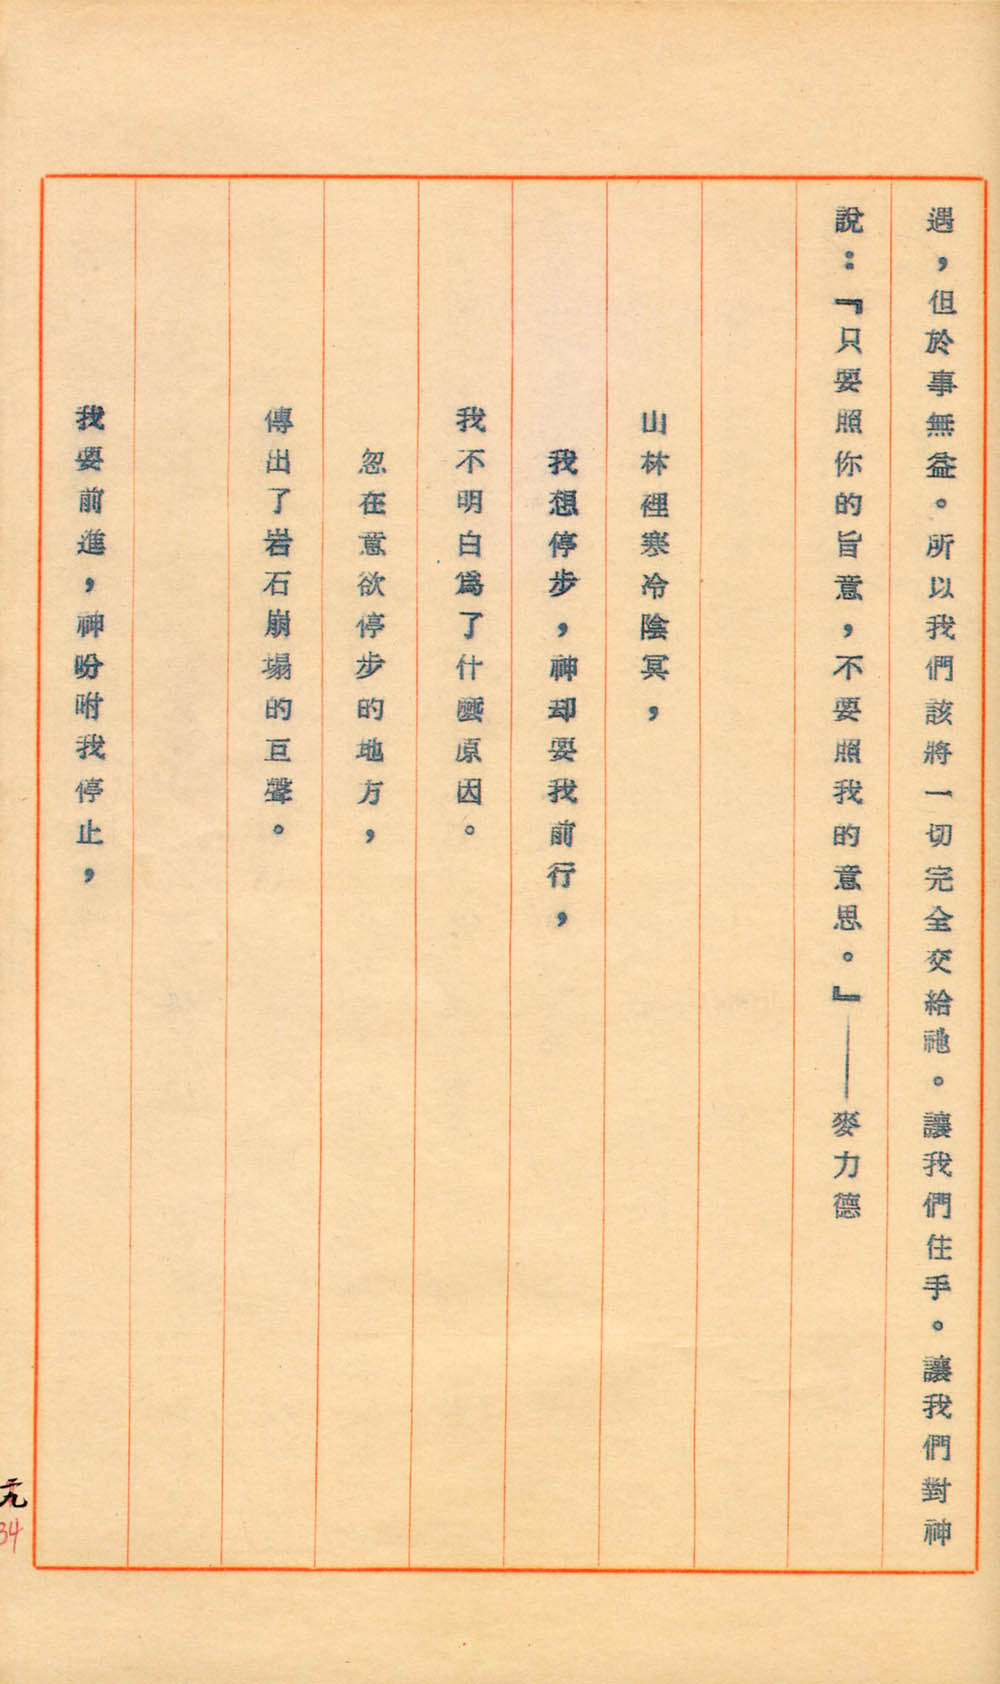 遇，但於事無益。所以我們該將一切完全交給祂。讓我們住手。讓我們對神
說：『只要照你的旨意，不要照我的意思。』——麥力德
山林裡寒冷陰冥，
我想停步，神却要我前行，
我不明白為了什麼原因。
忽在意欲停步的地方，
傳出了岩石崩塌的巨聲。
我要前進，神吩咐我停止，
34